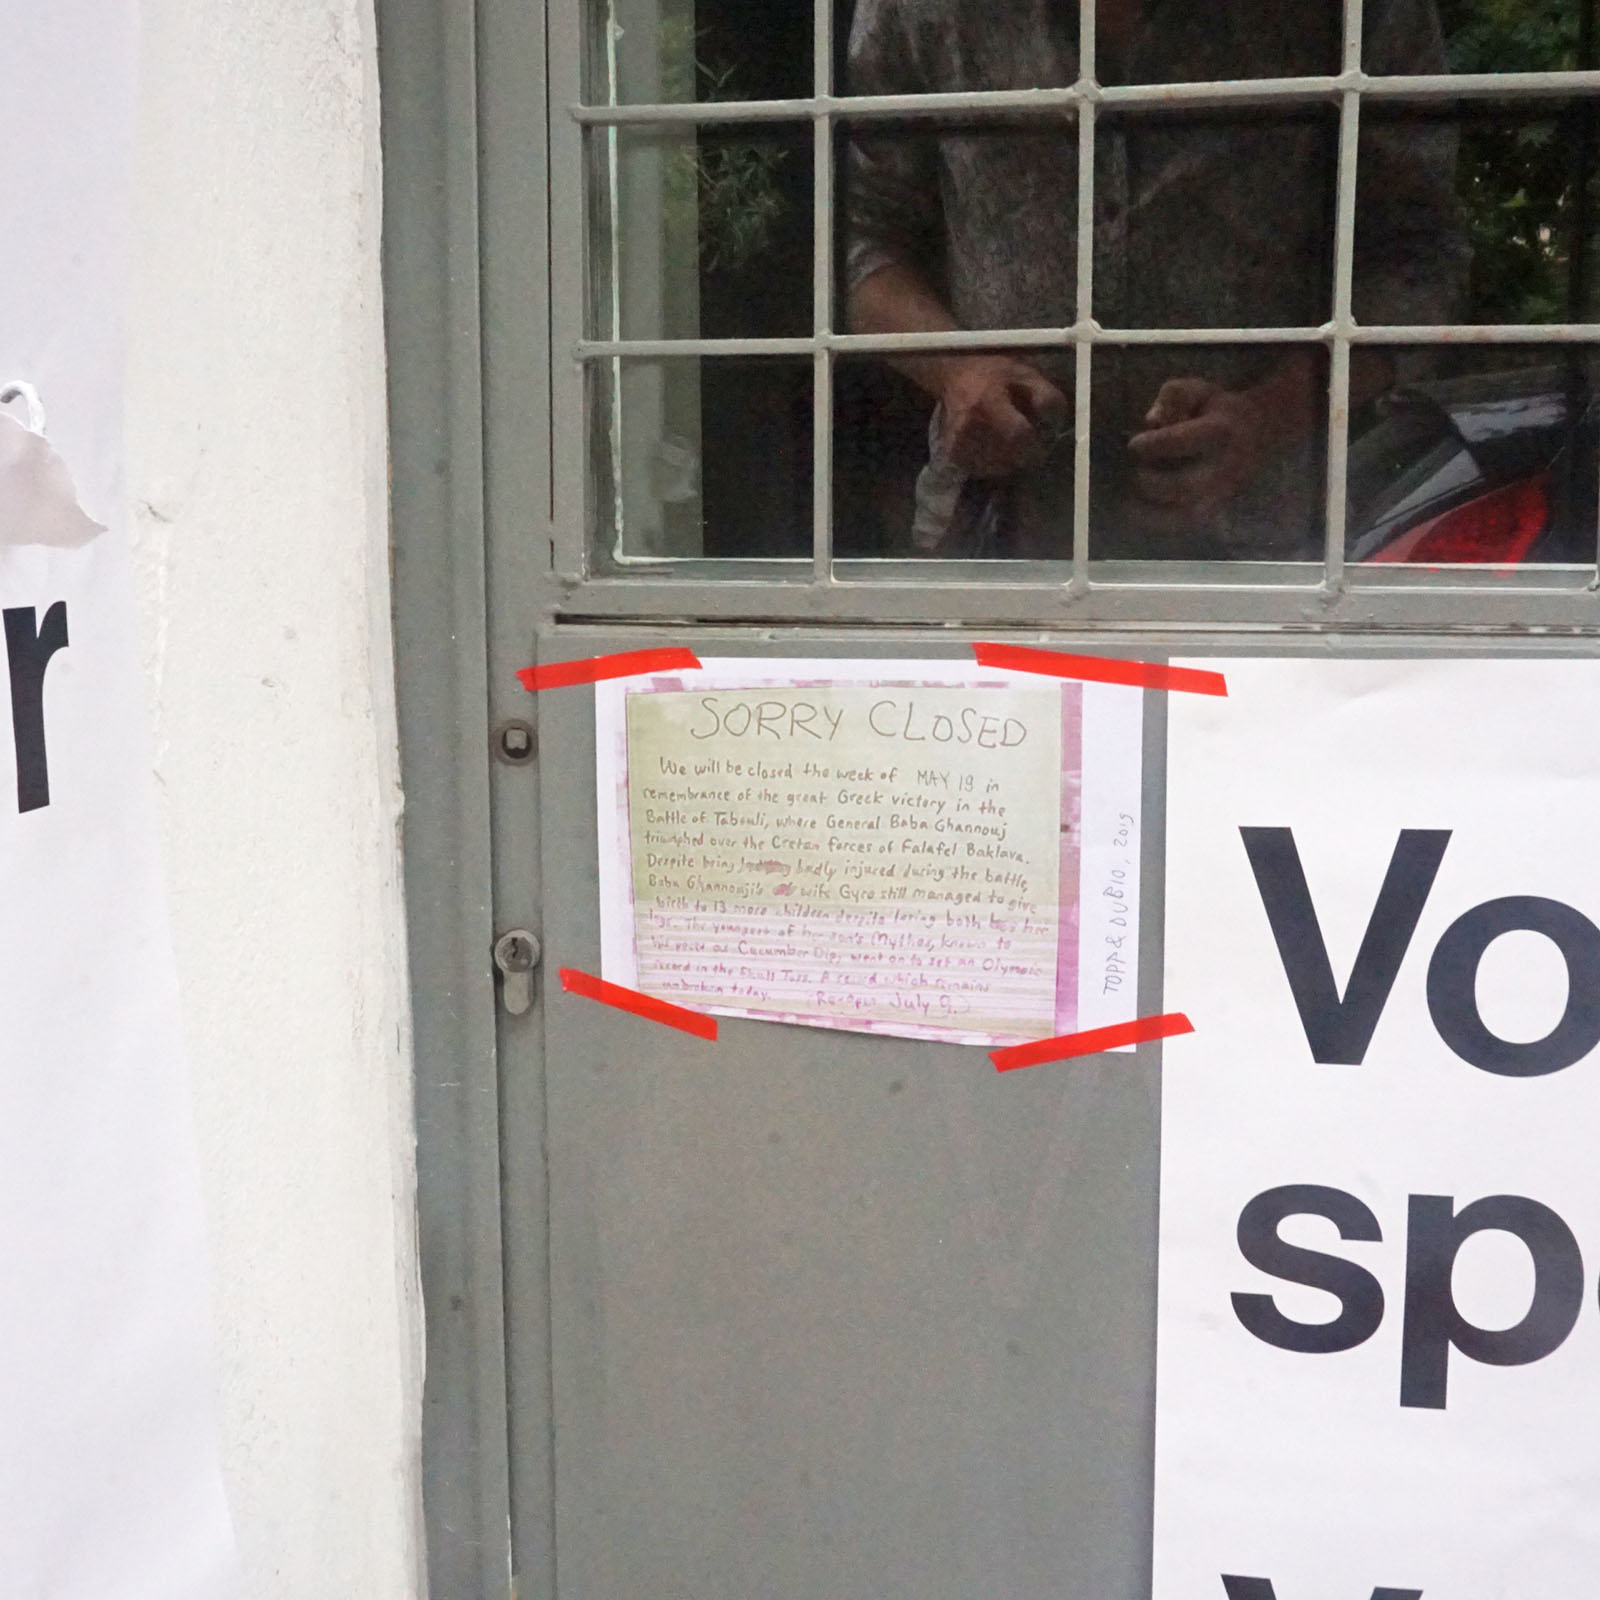 r
SORRY CLOSED
We will be closed the week of MAY 19 in
remembrance of the great Greek victory in the
Battle of Tabouli, where General Baba Ghannouj
triumphed over the Cretan forces of Falafel Baklava.
Despite being badly injured during the battle,
Baba Ghannouji's wife Gyro still managed to give
birth to 13 more children despite losing both her
legs. The youngest of her son's Mythos, known to
his peers as Cucumber Dip, went on to set an Olympic
record in the Skull Toss. A record which remains
unbroken today. (Reopen July 9.)
TOPP & DUBIO, 2019
Vo
sp